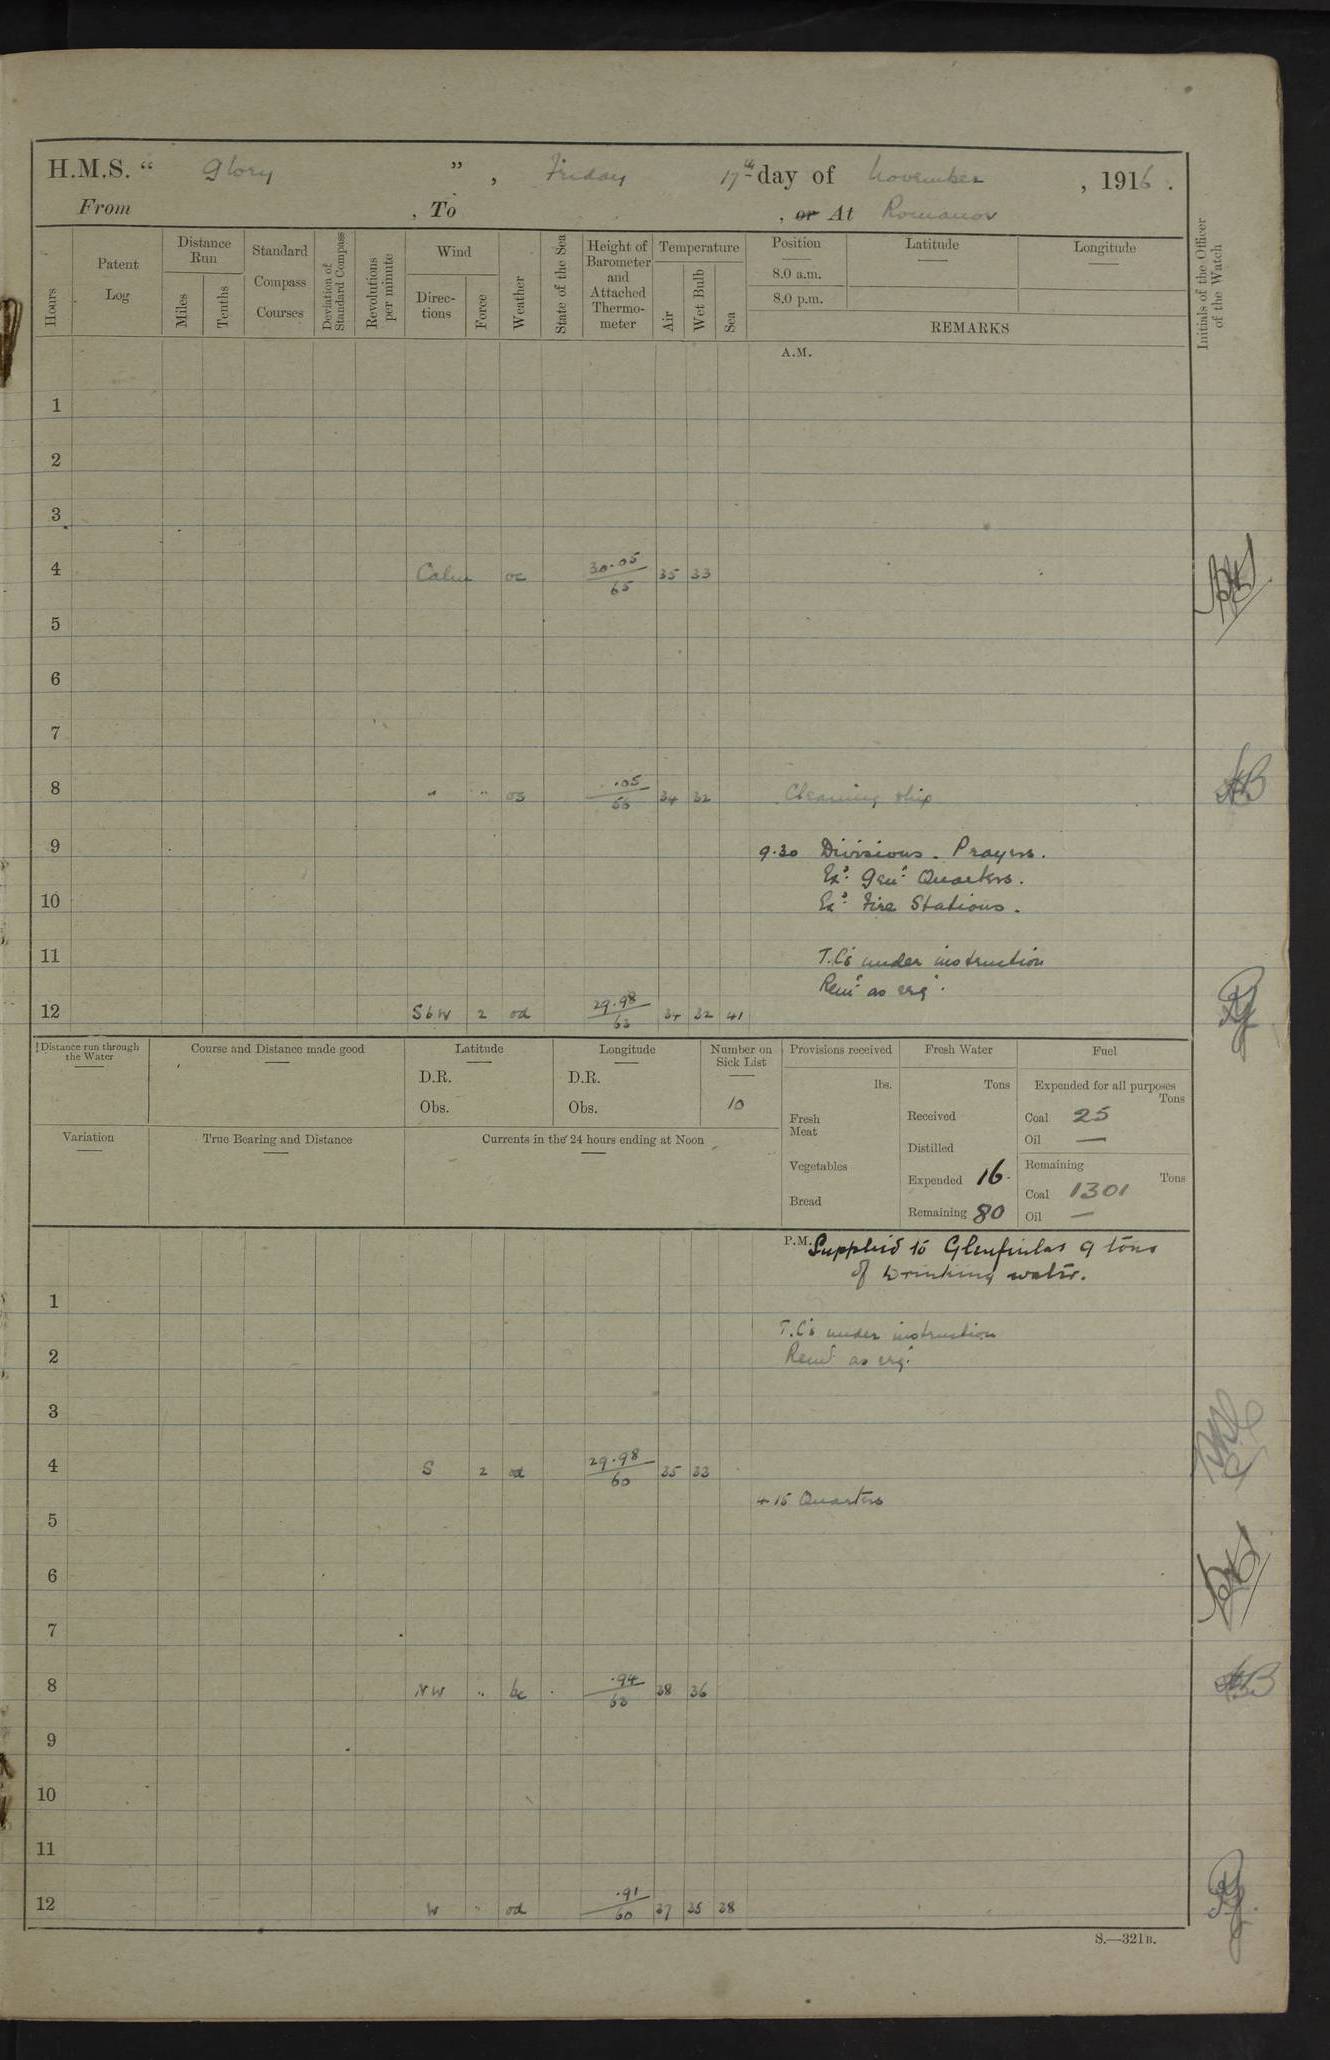 H.M.S. “ Glory ” , Friday 17th day of November , 1916 .
From , To , or At Romanov
Hours
Patent Log
Distance Run
Miles
Tenths
Standard Compass Courses
Deviation of Standard Compass
Revolutions per minute
Wind
Direc-tions
Force
Weather
State of the Sea
Height of Barometer and Attached Thermo-meter
Temperature
Air
Wet Bulb
Sea
Position
8.0 a.m.
8.0 p.m.
Latitude
Longitude
REMARKS
Initials of the Officer of the Watch
A.M.
1
2
3
4 Calm oc 30.05/65 35 33
5
6
7
8 " " 
.05/ 34 32 Cleaning ship
9 9.30 Divisions. Prayers.
Exd. Genl. Quarters.
10 Exd. Fire Stations.
11 T.C's under instruction
Remr as reqd.
12 SbW 2 od 29.98/63 34 32 41
Distance run through the Water
Course and Distance made good
Latitude
D.R.
Obs.
Longitude
D.R.
Obs.
Number on Sick List
10
Variation
True Bearing and Distance
Currents in the 24 hours ending at Noon
Provisions received
lbs.
Fresh Meat
Vegetables
Bread
Fresh Water
Tons
Received
Distilled
Expended 16.
Remaining 80
Fuel
Expended for all purposes
Tons
Coal 25
Oil —
Remaining
Tons
Coal 1301
Oil —
P.M. Supplied to Glenfinlas 9 tons
of drinking water.
1
T.C's under instruction
2 Remr as reqd.
3
4 S 2 od 29.98/60 35 33
4 15 Quarters
5
6
7
8 NW " bc .94/63 38 36
9
10
11
12 W " od .91/60 37 35 38
S.—321B.